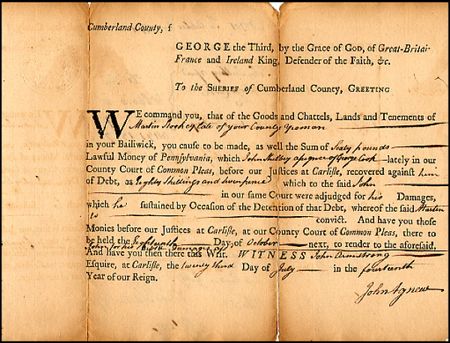 Cumberland County, ſ
GEORGE the Third, by the Grace of GOD, of Great-Britai-
France and Ireland King, Defender of the Faith, &c.
To the SHERIFF of Cumberland County, GREETING
WE command you, that of the Goods and Chattels, Lands and Tenements of
Martin late of your County Yeoman
in your Bailiwick, you cauſe to be made, as well the Sum of Sixty pounds
Lawful Money of Pennſylvania, which John aſsignee of George Cook lately in our
County Court of Common Pleas, before our Juſtices at Carliſle, recovered againſt him
of Debt, as Eighty Shillings and which to the ſaid John
in our ſame Court were adjudged for his Damages,
which he ſuſtained by Occaſion of the Detention of that Debt, whereof the ſaid Martin
is convict. And have you thoſe
Monies before our Juſtices at Carliſle, at our County Court of Common Pleas, there to
be held the Day of October next, to render to the aforeſaid,
John for his Debt & Damages
And have you then there this Writ. WITNESS John Armstrong
Eſquire, at Carliſle, the twenty third Day of July in the fourteenth
Year of our Reign.
John Agnew